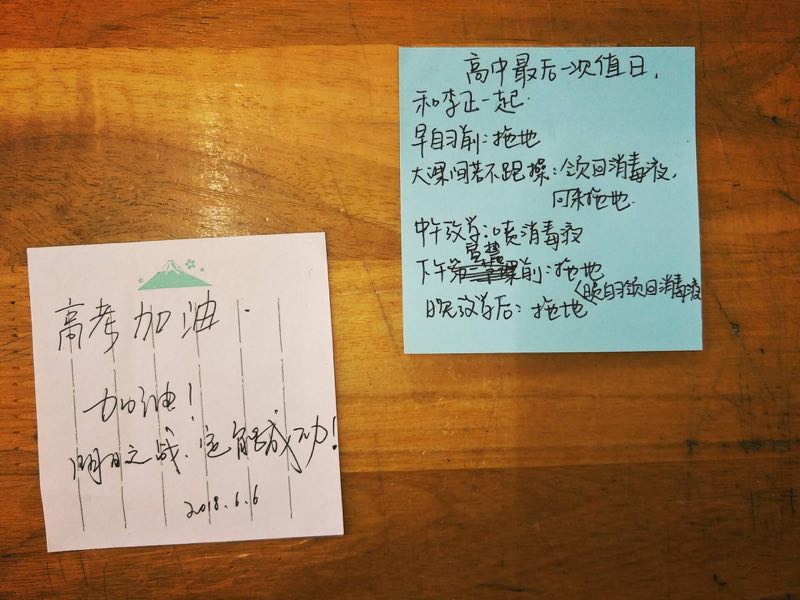 高考加油.
加油!
明日之战,定能成功!
2018.6.6
高中最后一次值日,
和李正一起.
早自习前:拖地
大课间若不跑操:领回消毒液,
回来拖地.
中午放学:喷消毒液
下午第三节课前:拖地
(晚自习领回消毒液
晚放学后:拖地